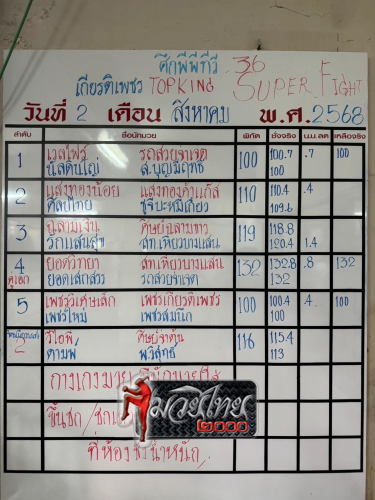 ศึกพีพีทีวี 36
เกียรติเพชร TOPKING SUPER FIGHT
วันที่ 2 เดือน สิงหาคม พ.ศ. 2568
ลำดับ ชื่อนักมวย พิกัด ชั่งจริง น.น.ลด เหลือจริง
1 เวลไฟร์ รถสวยจาเจต 100 100.7 .7 100
ส.บุญมีฤทธิ์ 100
2 แสงทองน้อย แสงทองคำแก๊ส 110 110.4 .4
ศิลป์ไทย ชูจิบะหมี่เกี๊ยว 109.6
3 ฉลามเงิน ศิษย์ฉลามขาว 119 118.8
รักแสนสุข สท.เหี่ยวบางแสน 120.4 1.4
4 ยอดวิทยา สท.เหี่ยวบางแสน 132 132.8 .8 132
คู่เอก ยอดเล็กสิงว รถสวยจาเจต 132
5 เพชรวิเศษเล็ก เพชรเกียรติเพชร 100 100.4 .4 100
เพชรใหม่ เพชรสมนึก 100
2 วีไอพี ศิษย์จ่าตุ้น 116 115.4
ตามพ์ พ.วิสุทธิ์ 113
กางเกงมวย
ขึ้นชก /
มวยไทย
๒๐๐๐
ที่ห้อง ชั่งน้ำหนัก